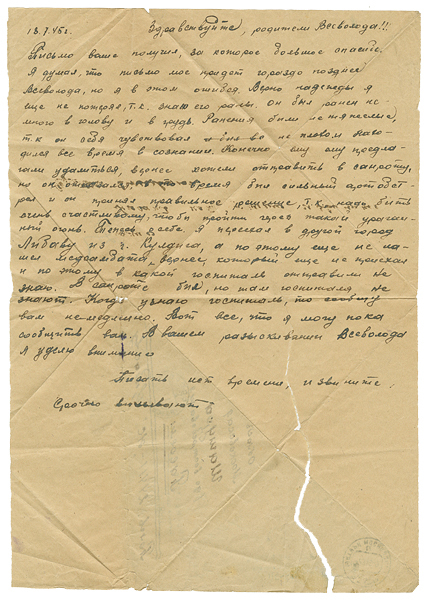 18.7.45г. Здравствуйте, родители Всеволода!!
Письмо ваше получил, за которое большое спасибо.
Я думал, что письмо мое придет гораздо позднее
Всеволода, но я в этом ошибся. Верно надежды я
еще не потерял, т.к. знаю его раны. Он был ранен не
много в голову и в грудь. Ранения были не тяжелые,
т.к он себя чувствовал и был во не плохом нахо-
дился все время в сознании. Конечно ему ему предла-
гали удалиться, вернее хотели отправить в санроту,
но он отказался время был сильный артобст-
рел и он принял правильное решение, т.к. надо быть
очень счастливому, чтобы пройти через такой ураган-
ный огонь. Теперь о себе. Я приехал в другой город
Либаву из г. Кулдига, а по этому еще не на-
шел медсанбата, вернее, который еще не приехал
и по этому в какой госпиталь отправили не
знаю. В санроте был, но там госпиталя, не
знают. Когда узнаю госпиталь, то сообщу
вам немедленно. Вот все, что я могу пока
сообщить вам. В вашем разыскивании Всеволода
я уделю внимание
Писать нет времени, извините.
Срочно вызывают